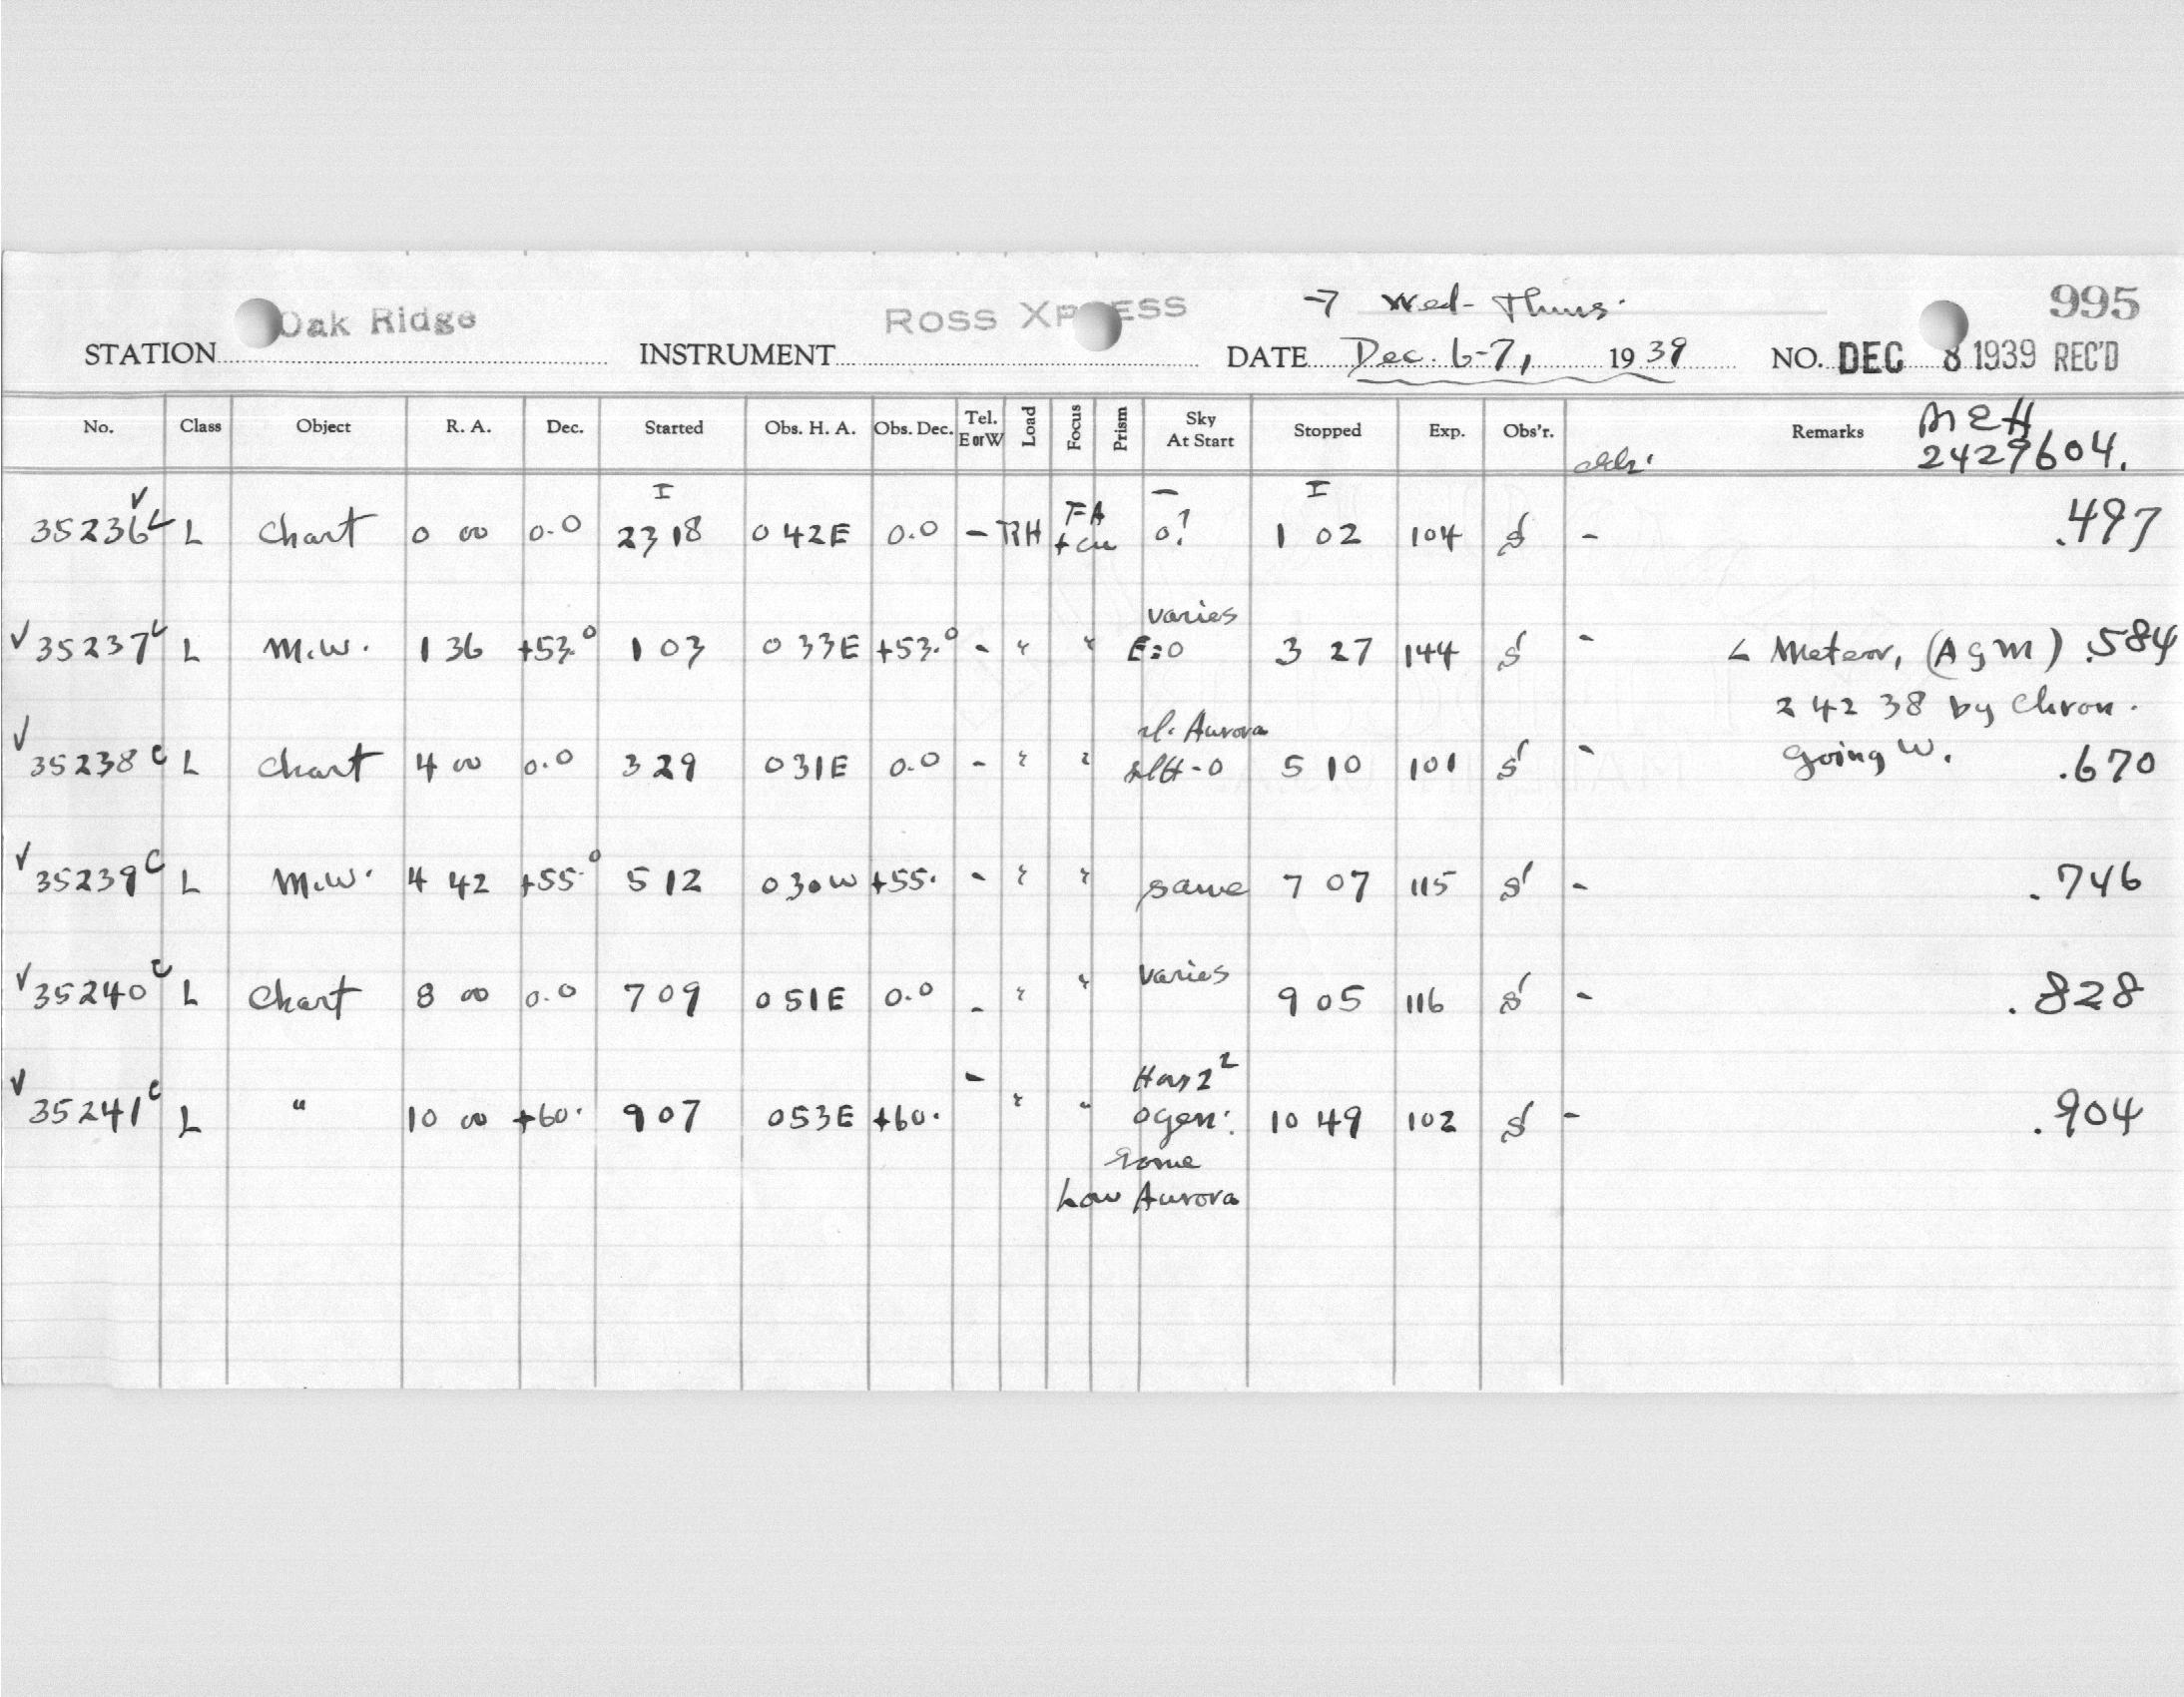 Oak Ridge ROSS XPRESS → Wed- Thurs. 995
STATION INSTRUMENT DATE Dec. 6-7, 1939 NO. DEC 8 1939 REC'D
No. Class Object R. A. Dec. Started Obs. H. A. Obs. Dec. Tel. E or W Load Focus Prism Sky At Start Stopped Exp. Obs'r. Remarks MEH
2429604.
I – I
√ 35236 L Chart 0 00 0.0 23 18 0 42E 0.0 – RH FA + cu 0? 1 02 104 S – .497
varies
√ 35237 L M.W. 1 36 +53.0 1 03 0 33E +53.0 - " " E=0 3 27 144 S - ∠ Meteor, (AGM) .584
2 42 38 by Chron.
sl. Aurora
√ 35238 c L Chart 4 00 0.0 3 29 0 31E 0.0 - " " slH-0 5 10 101 S - going W. .670
√ 35239 c L M.W. 4 42 +55.0 5 12 0 30W +55. - " " same 7 07 115 S - .746
√ 35240 c L Chart 8 00 0.0 7 09 0 51E 0.0 - " " varies 9 05 116 S - .828
√ 35241 c L " 10 00 +60. 9 07 0 53E +60. - " " 0 gen. 10 49 102 S - .904
some
Low Aurora